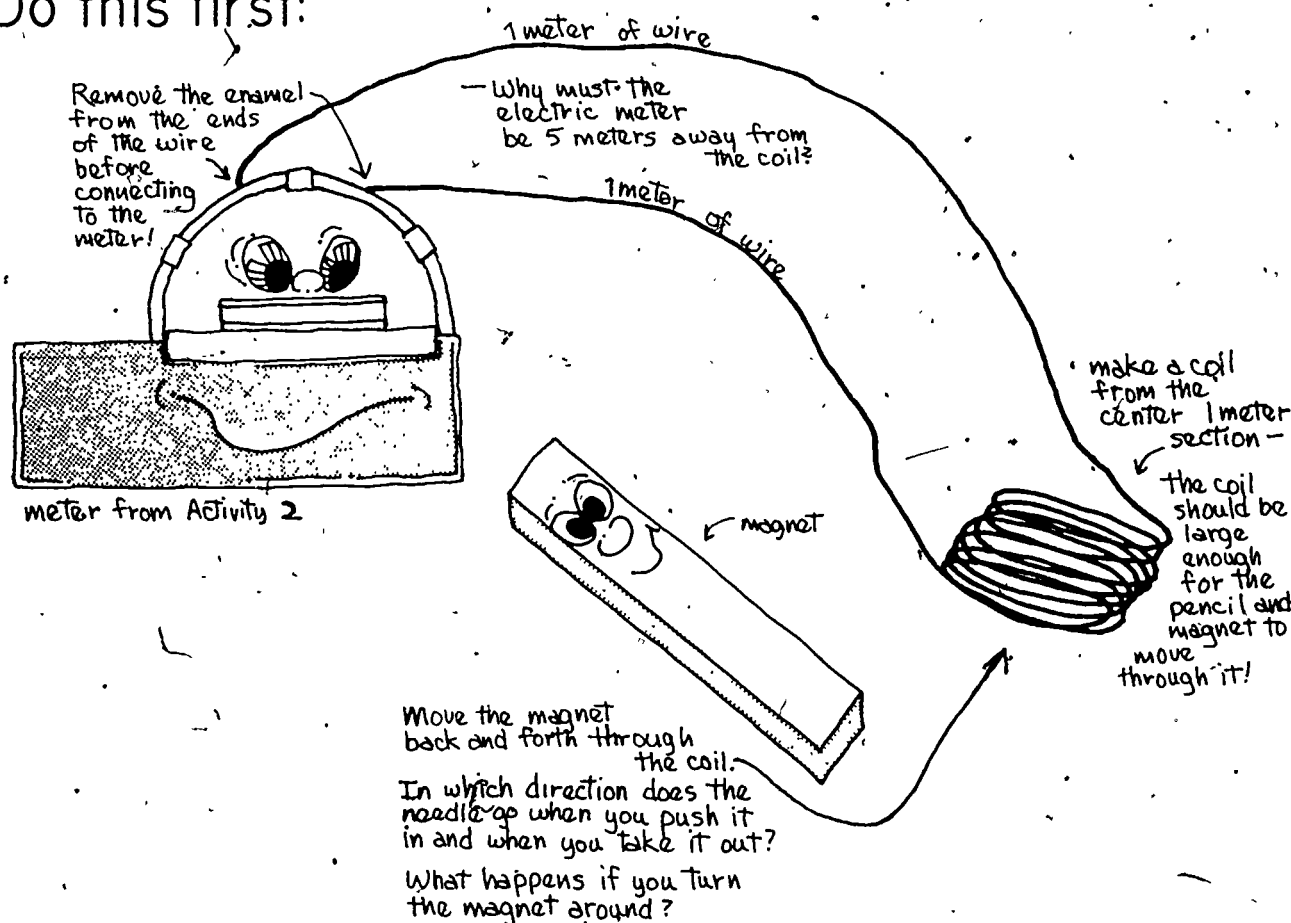 Do this first:
1 meter of wire
Remove the enamel
from the ends
of the wire
before
connecting
to the
meter!
— Why must the
electric meter
be 5 meters away from
the coil?
1 meter of wire
make a coil
from the
center 1 meter
section –
the coil
should be
large
enough
for the
pencil and
magnet to
move
through it!
meter from Activity 2
magnet
Move the magnet
back and forth through
the coil.
In which direction does the
needle go when you push it
in and when you take it out?
What happens if you turn
the magnet around?